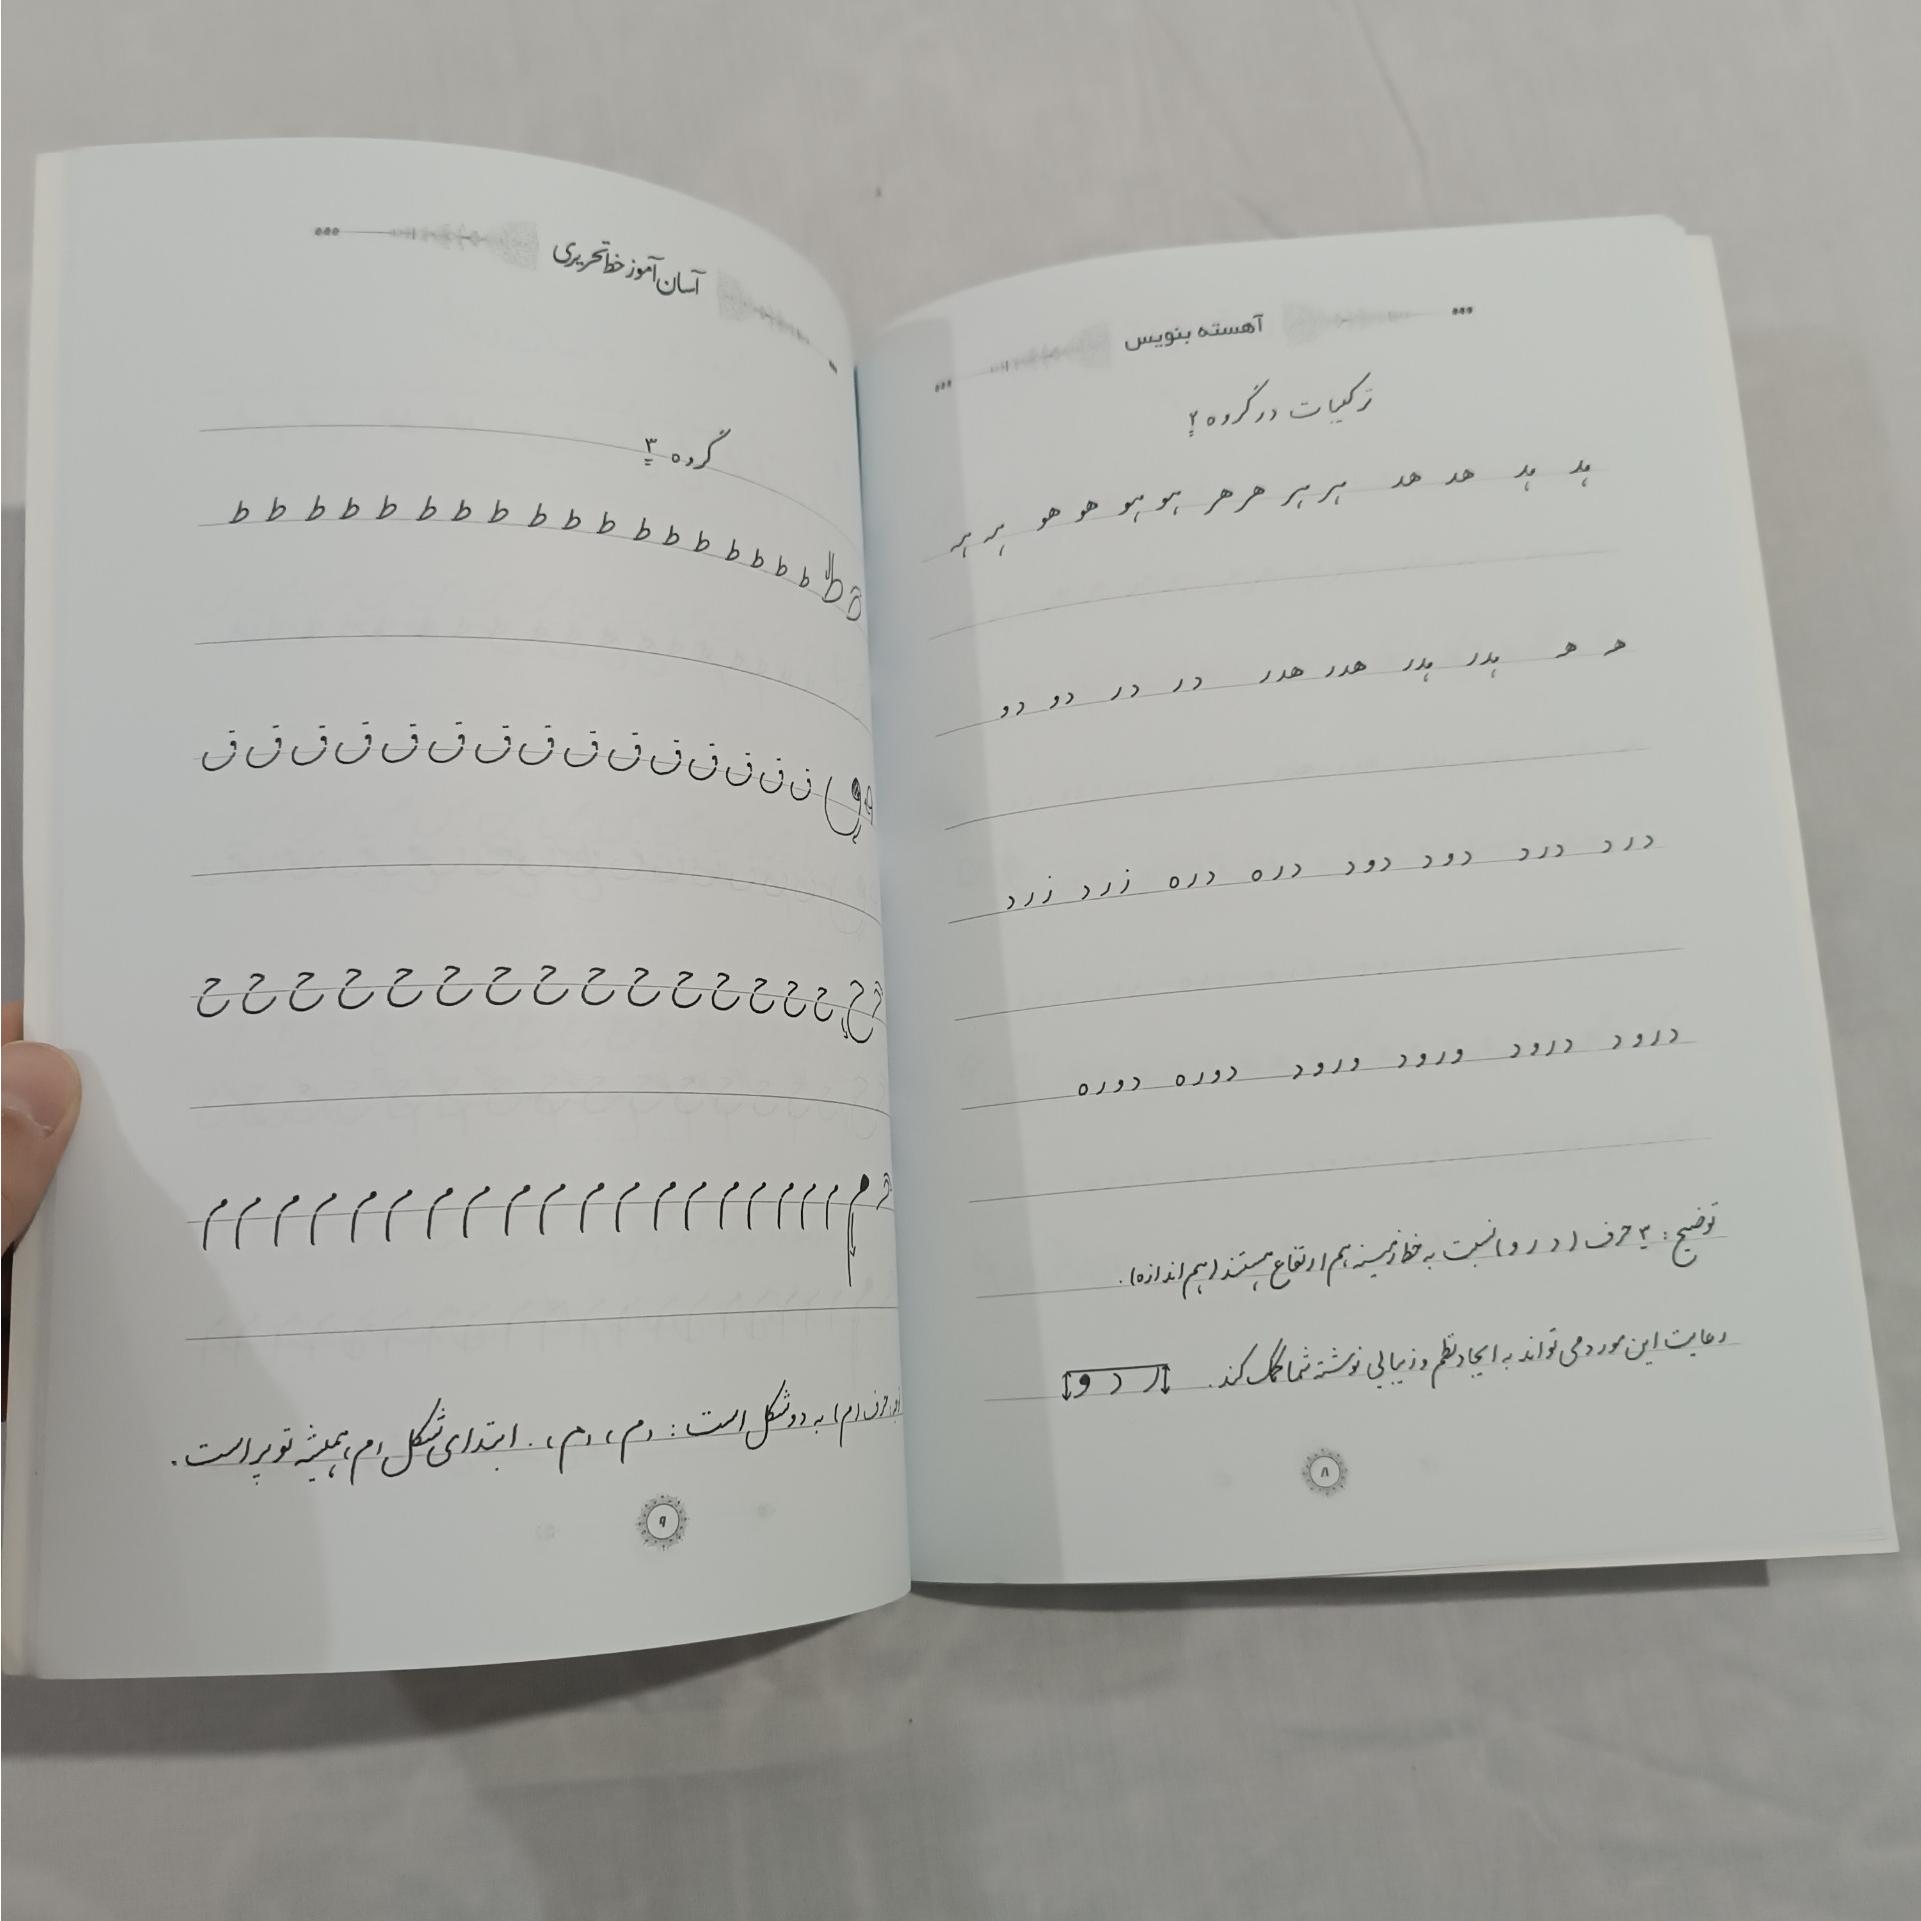 آهسته بنویس
ترکیبات در گروه ۲
هد هد هد هد هر هر هر هر هو هو هو هو
ه ه هدر هدر هدر هدر در در دو دو
درد درد دود دود دره دره زرد زرد
درود درود ورود ورود دوره دوره
توضیح: ۳ حرف (د ر و) نسبت به خط زمینه هم ارتفاع هستند (هم اندازه).
رعایت این مورد می تواند به ایجاد نظم و زیبایی نوشته شما کمک کند. ر د و
۸
آسان آموز خط تحریری
گروه ۳
ط ط ط ط ط ط ط ط ط ط ط ط ط ط ط ط ط ط
ق ق ق ق ق ق ق ق ق ق ق ق ق ق ق ق
ح ح ح ح ح ح ح ح ح ح ح ح ح ح ح ح
م م م م م م م م م م م م م م م م م م م
حرف (م) به دو شکل است: (م)، (م). ابتدای شکل (م) همیشه توپر است.
۹